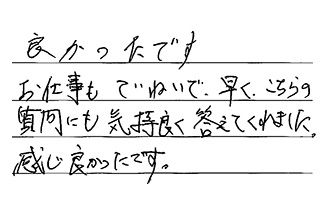 良かったです
お仕事も ていねいで、早く、こちらの
質問にも 気持良く 答えてくれました。
感じ良かったです。